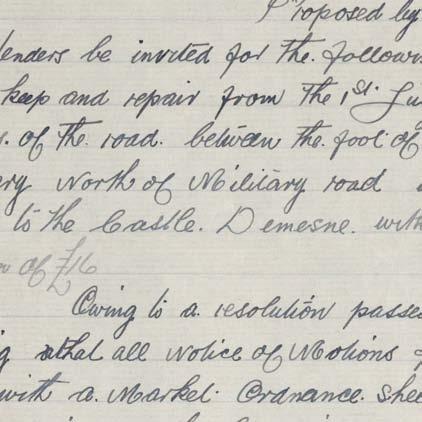 Proposed by
Tenders be invited for the follow
keep and repair from the 1st Ju
. of the road. between the foot of
ery North of Military road
to the Castle. Demesne. with
of £16
Owing to a resolution passe
g that all Notice of Motions
with a. Marked. Ordnance. Shee